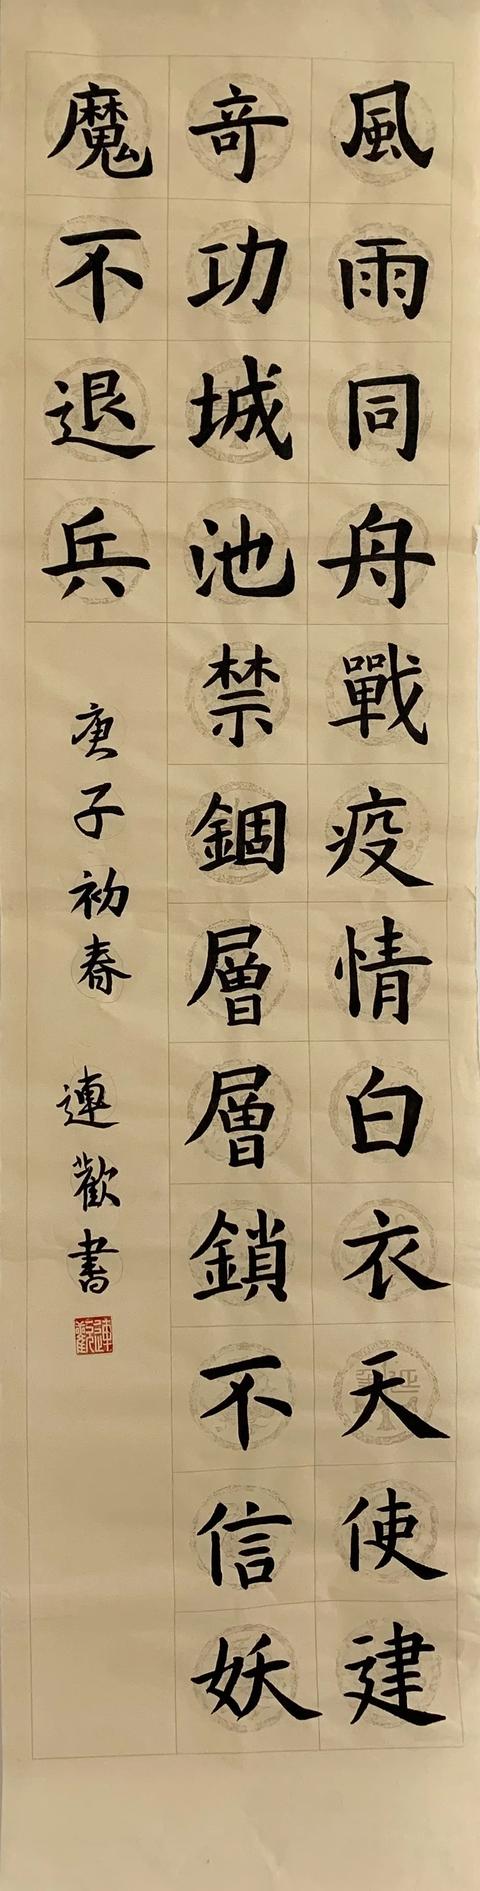 風雨同舟戰疫情白衣天使建
奇功城池禁錮層層鎖不信妖
魔不退兵
庚子初春 連歡書
連歡